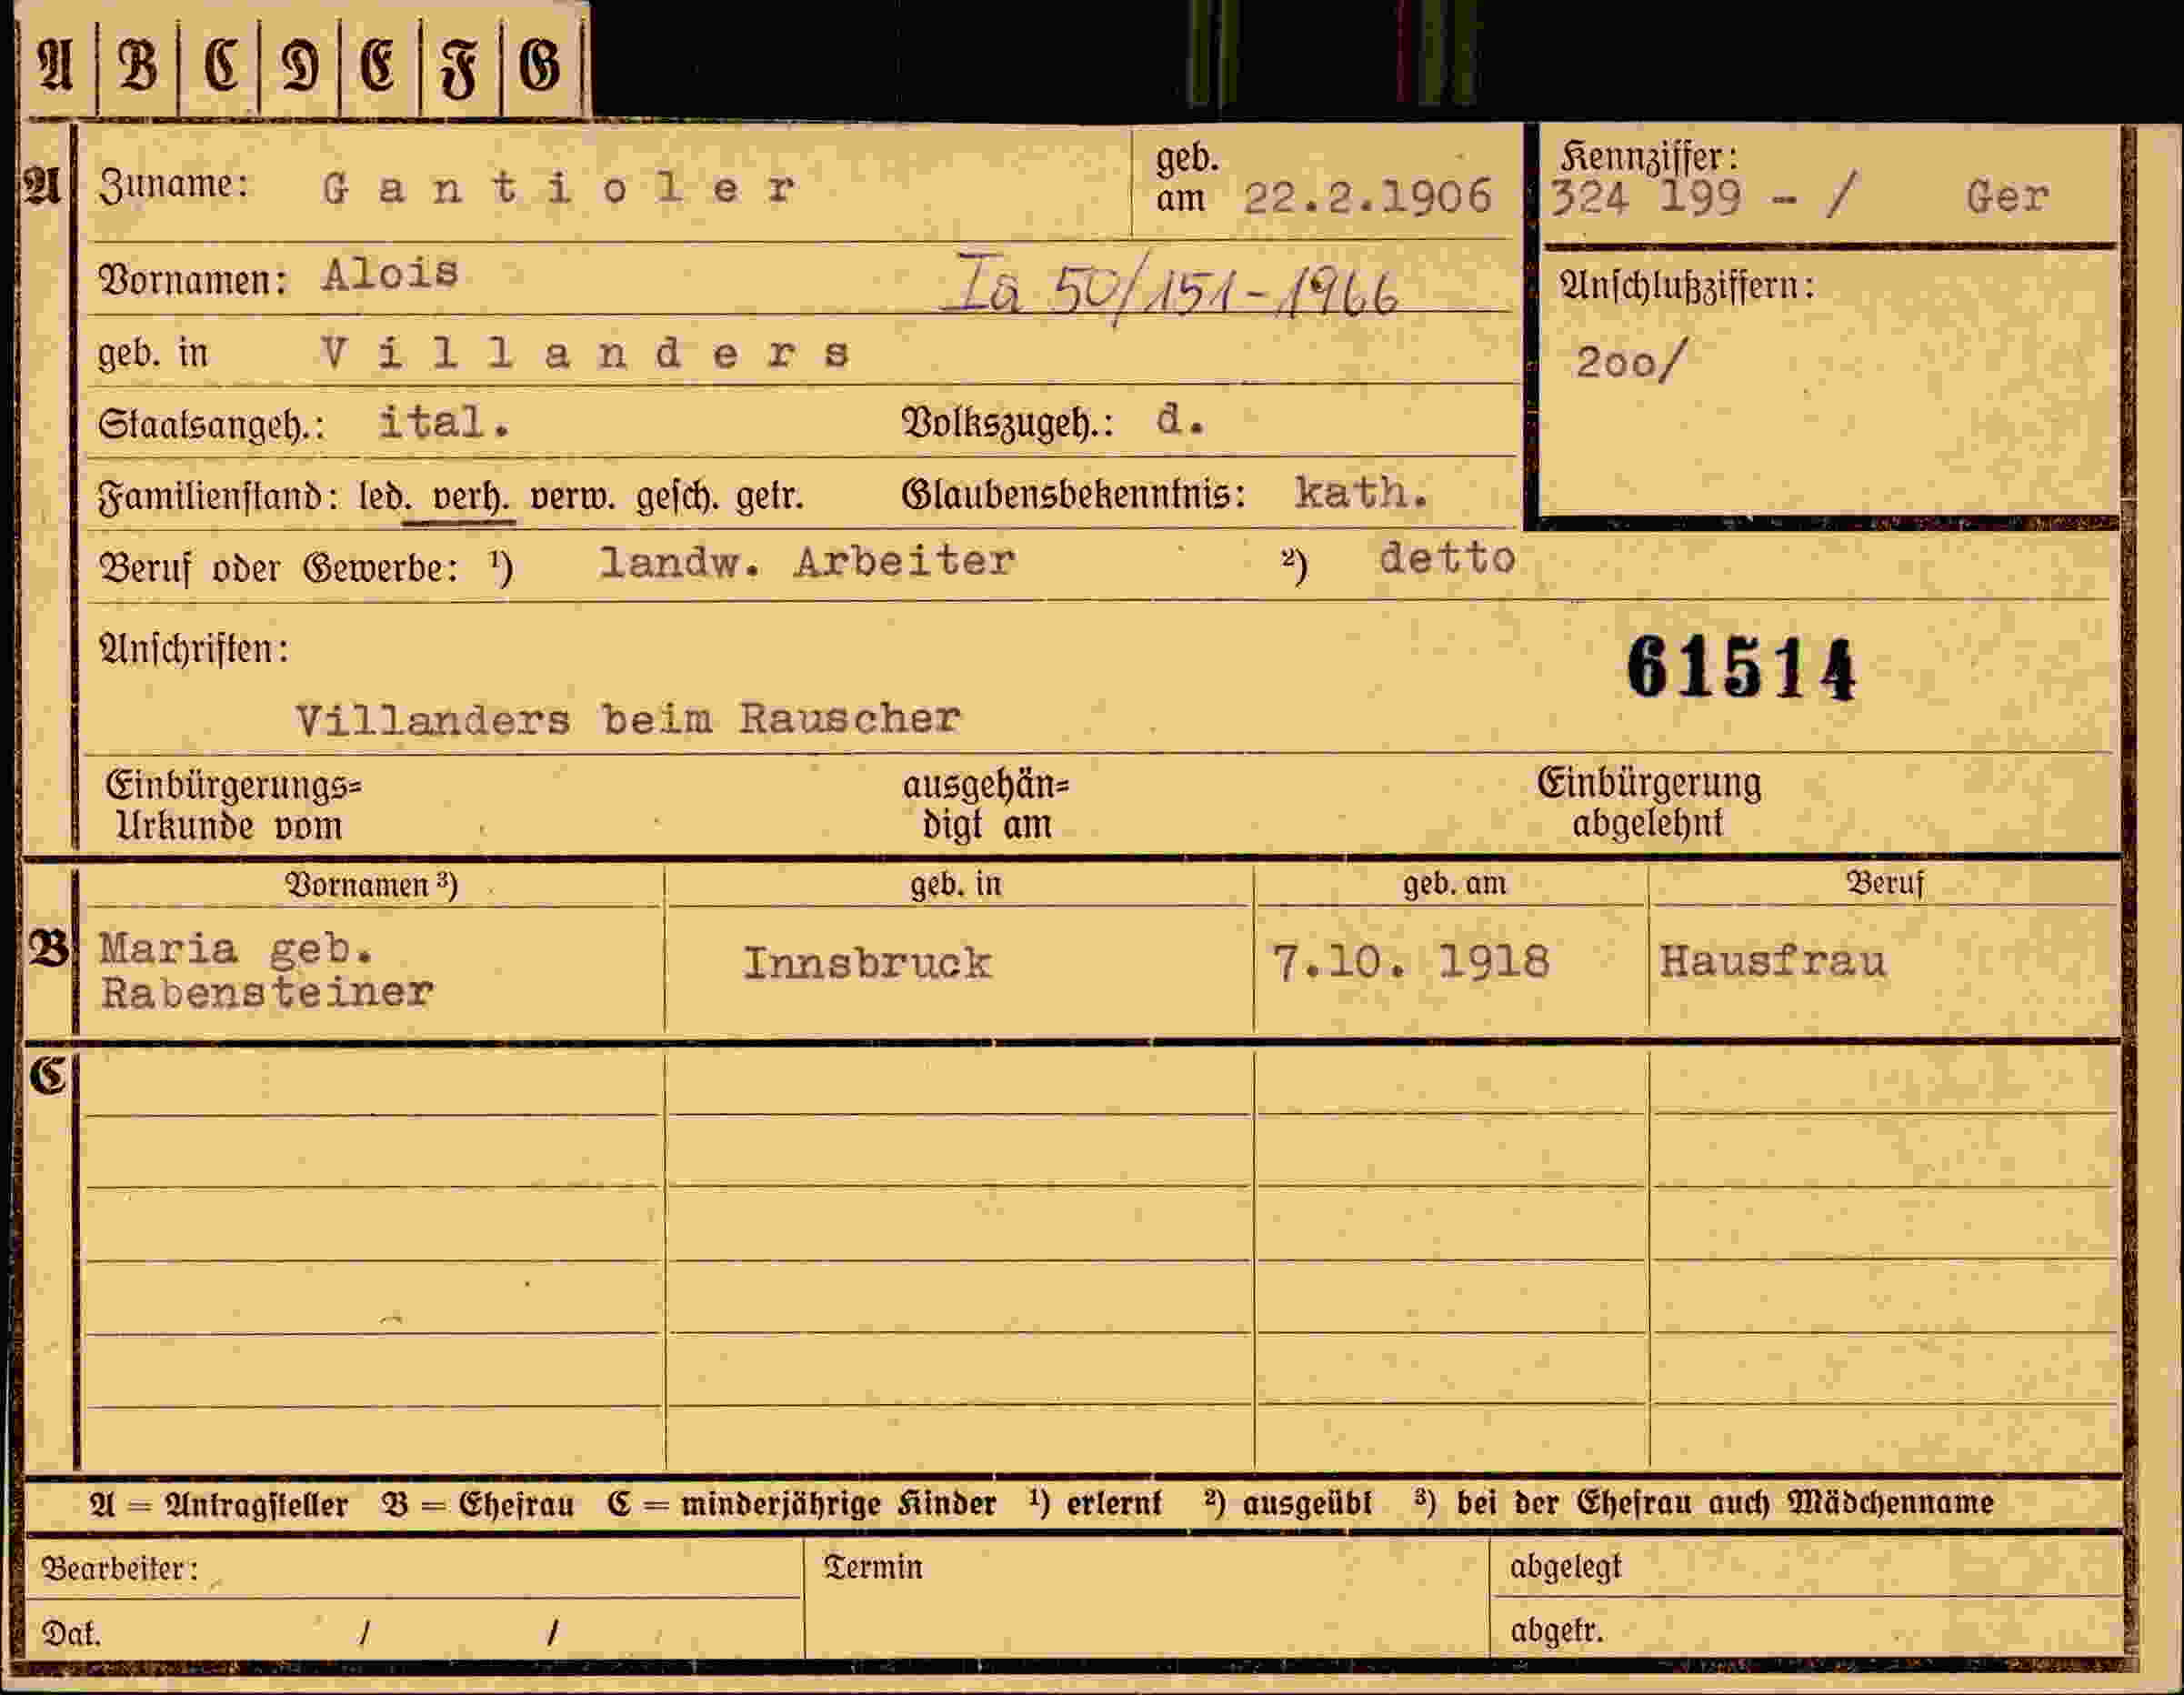 A B C D E F G
A Zuname: Gantioler geb. am 22.2.1906 Kennziffer: 324 199 - / Ger
Vornamen: Alois Ia 50/151-1966 Anschlußziffern:
geb. in Villanders 200/
Staatsangeh.: ital. Volkszugeh.: d.
Familienstand: led. verh. verw. gesch. getr. Glaubensbekenntnis: kath.
Beruf oder Gewerbe: 1) landw. Arbeiter 2) detto
Anschriften: 61514
Villanders beim Rauscher
Einbürgerungs= ausgehän= Einbürgerung
Urkunde vom digt am abgelehnt
Vornamen 3) geb. in geb. am Beruf
B Maria geb. Innsbruck 7.10. 1918 Hausfrau
Rabensteiner
C
A = Antragsteller B = Ehefrau C = minderjährige Kinder 1) erlernt 2) ausgeübt 3) bei der Ehefrau auch Mädchenname
Bearbeiter: Termin abgelegt
Dat. / / abgetr.